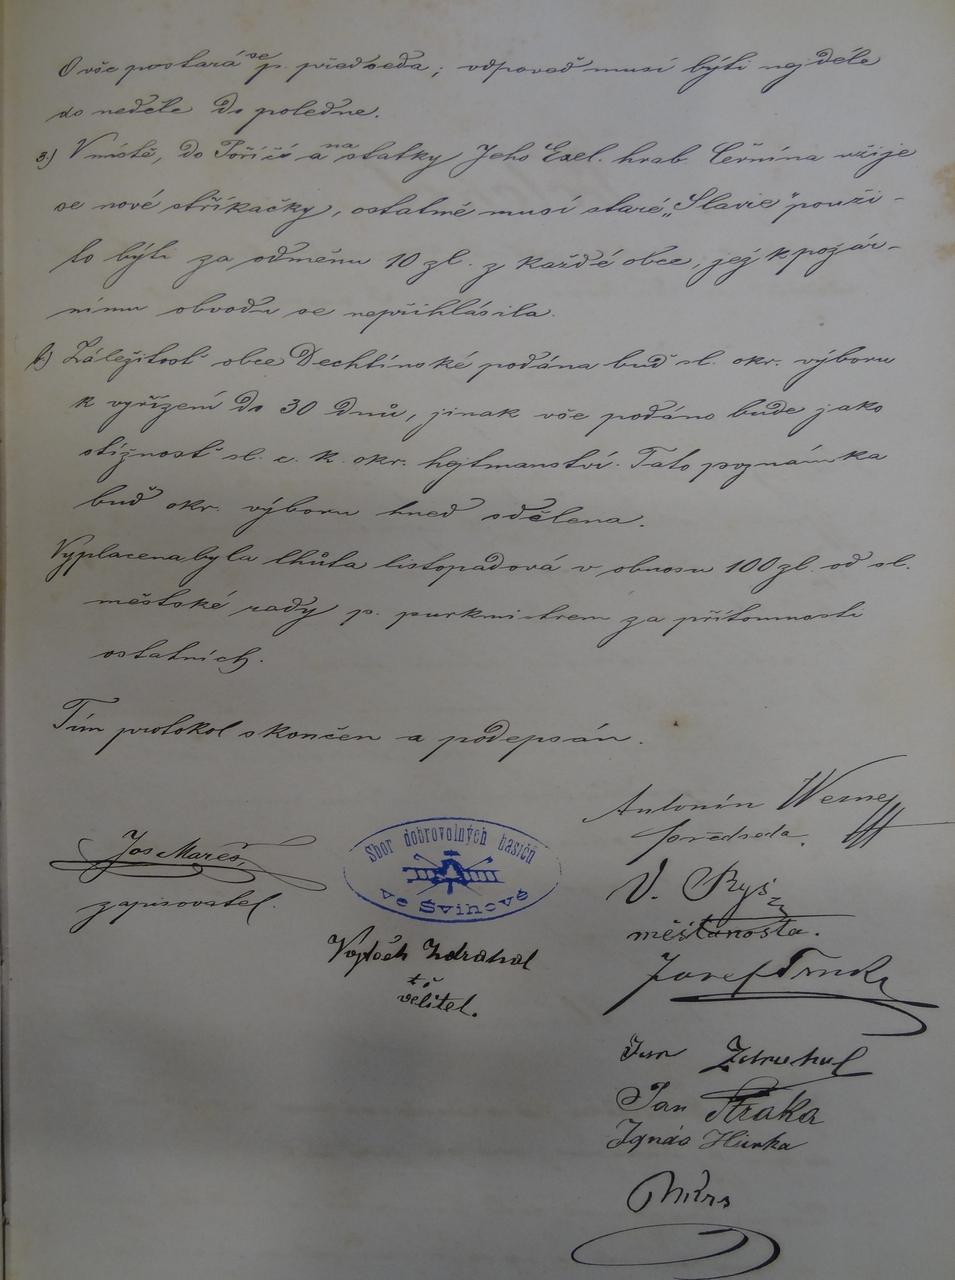 O vše postará se p. předseda; odpověď musí býti nejdéle
do neděle do poledne.
3.) V místě, do Poříčí a na statky Jeho Exel. hrab. Černína užije
se nové stříkačky, ostatně musí staré „Slavie" použi-
to býti za odměnu 10 zl. z každé obce, jež k požár-
nímu obvodu se nepřihlásila.
Záležitosť obce Dechtínské podána buď sl. okr. výboru
k vyřízení do 30 dnů, jinak vše podáno bude jako
stížnosť sl. c. k. okr. hejtmanství. Tato poznámka
buď okr. výboru hned sdělena.
Vyplacena byla lhůta listopadová v obnosu 100 zl. od sl.
městské rady p. purkmistrem za přítomnosti
ostatních.
Tím protokol skončen a podepsán.
Antonín
předseda.
Jos. Mareš,
zapisovatel.
Sbor dobrovolných hasičů
ve Švihově
V. Ryš
měšťanosta.
Vojtěch Zdráhal
t. č.
velitel.
Josef Trnka
Jan Zdráhal
Jan Straka
Ignác Hůrka